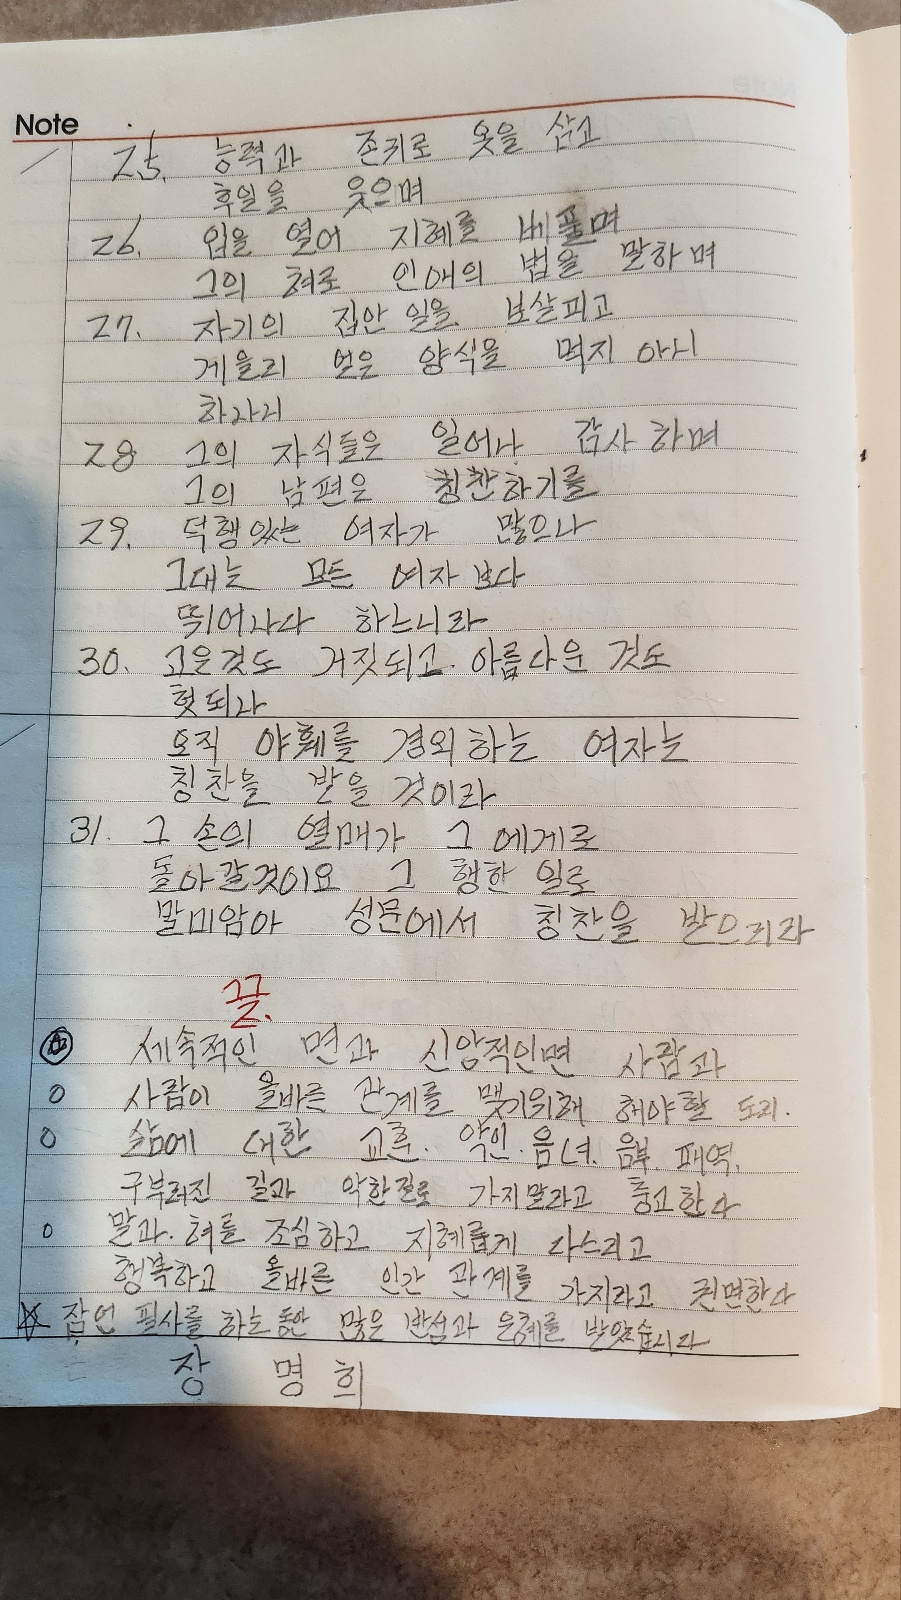 Note
25. 능력과 존귀로 옷을 삼고
후일을 웃으며
26. 입을 열어 지혜를 베풀며
그의 혀로 인애의 법을 말하며
27. 자기의 집안 일을 보살피고
게을리 얻은 양식을 먹지 아니
하나니
28 그의 자식들은 일어나 감사하며
그의 남편은 칭찬하기를
29. 덕행있는 여자가 많으나
그대는 모든 여자보다
뛰어나다 하느니라
30. 고운것도 거짓되고. 아름다운 것도
헛되나
오직 야훼를 경외하는 여자는
칭찬을 받을 것이라
31. 그 손의 열매가 그 에게로
돌아갈것이요 그 행한 일로
말미암아 성문에서 칭찬을 받으리라
끝.
세속적인 면과 신앙적인면 사람과
o 사람이 올바른 관계를 맺기위해 해야할 도리.
o 삶에 대한 교훈. 악인. 음녀. 음부. 패역.
구부러진 길과 악한길로 가지말라고 충고한다
o 말과. 혀를 조심하고 지혜롭게 다스리고
행복하고 올바른 인간 관계를 가지라고 권면한다
☆ 잠언 필사를 하는동안 많은 반성과 은혜를 받았습니다
장 명 희